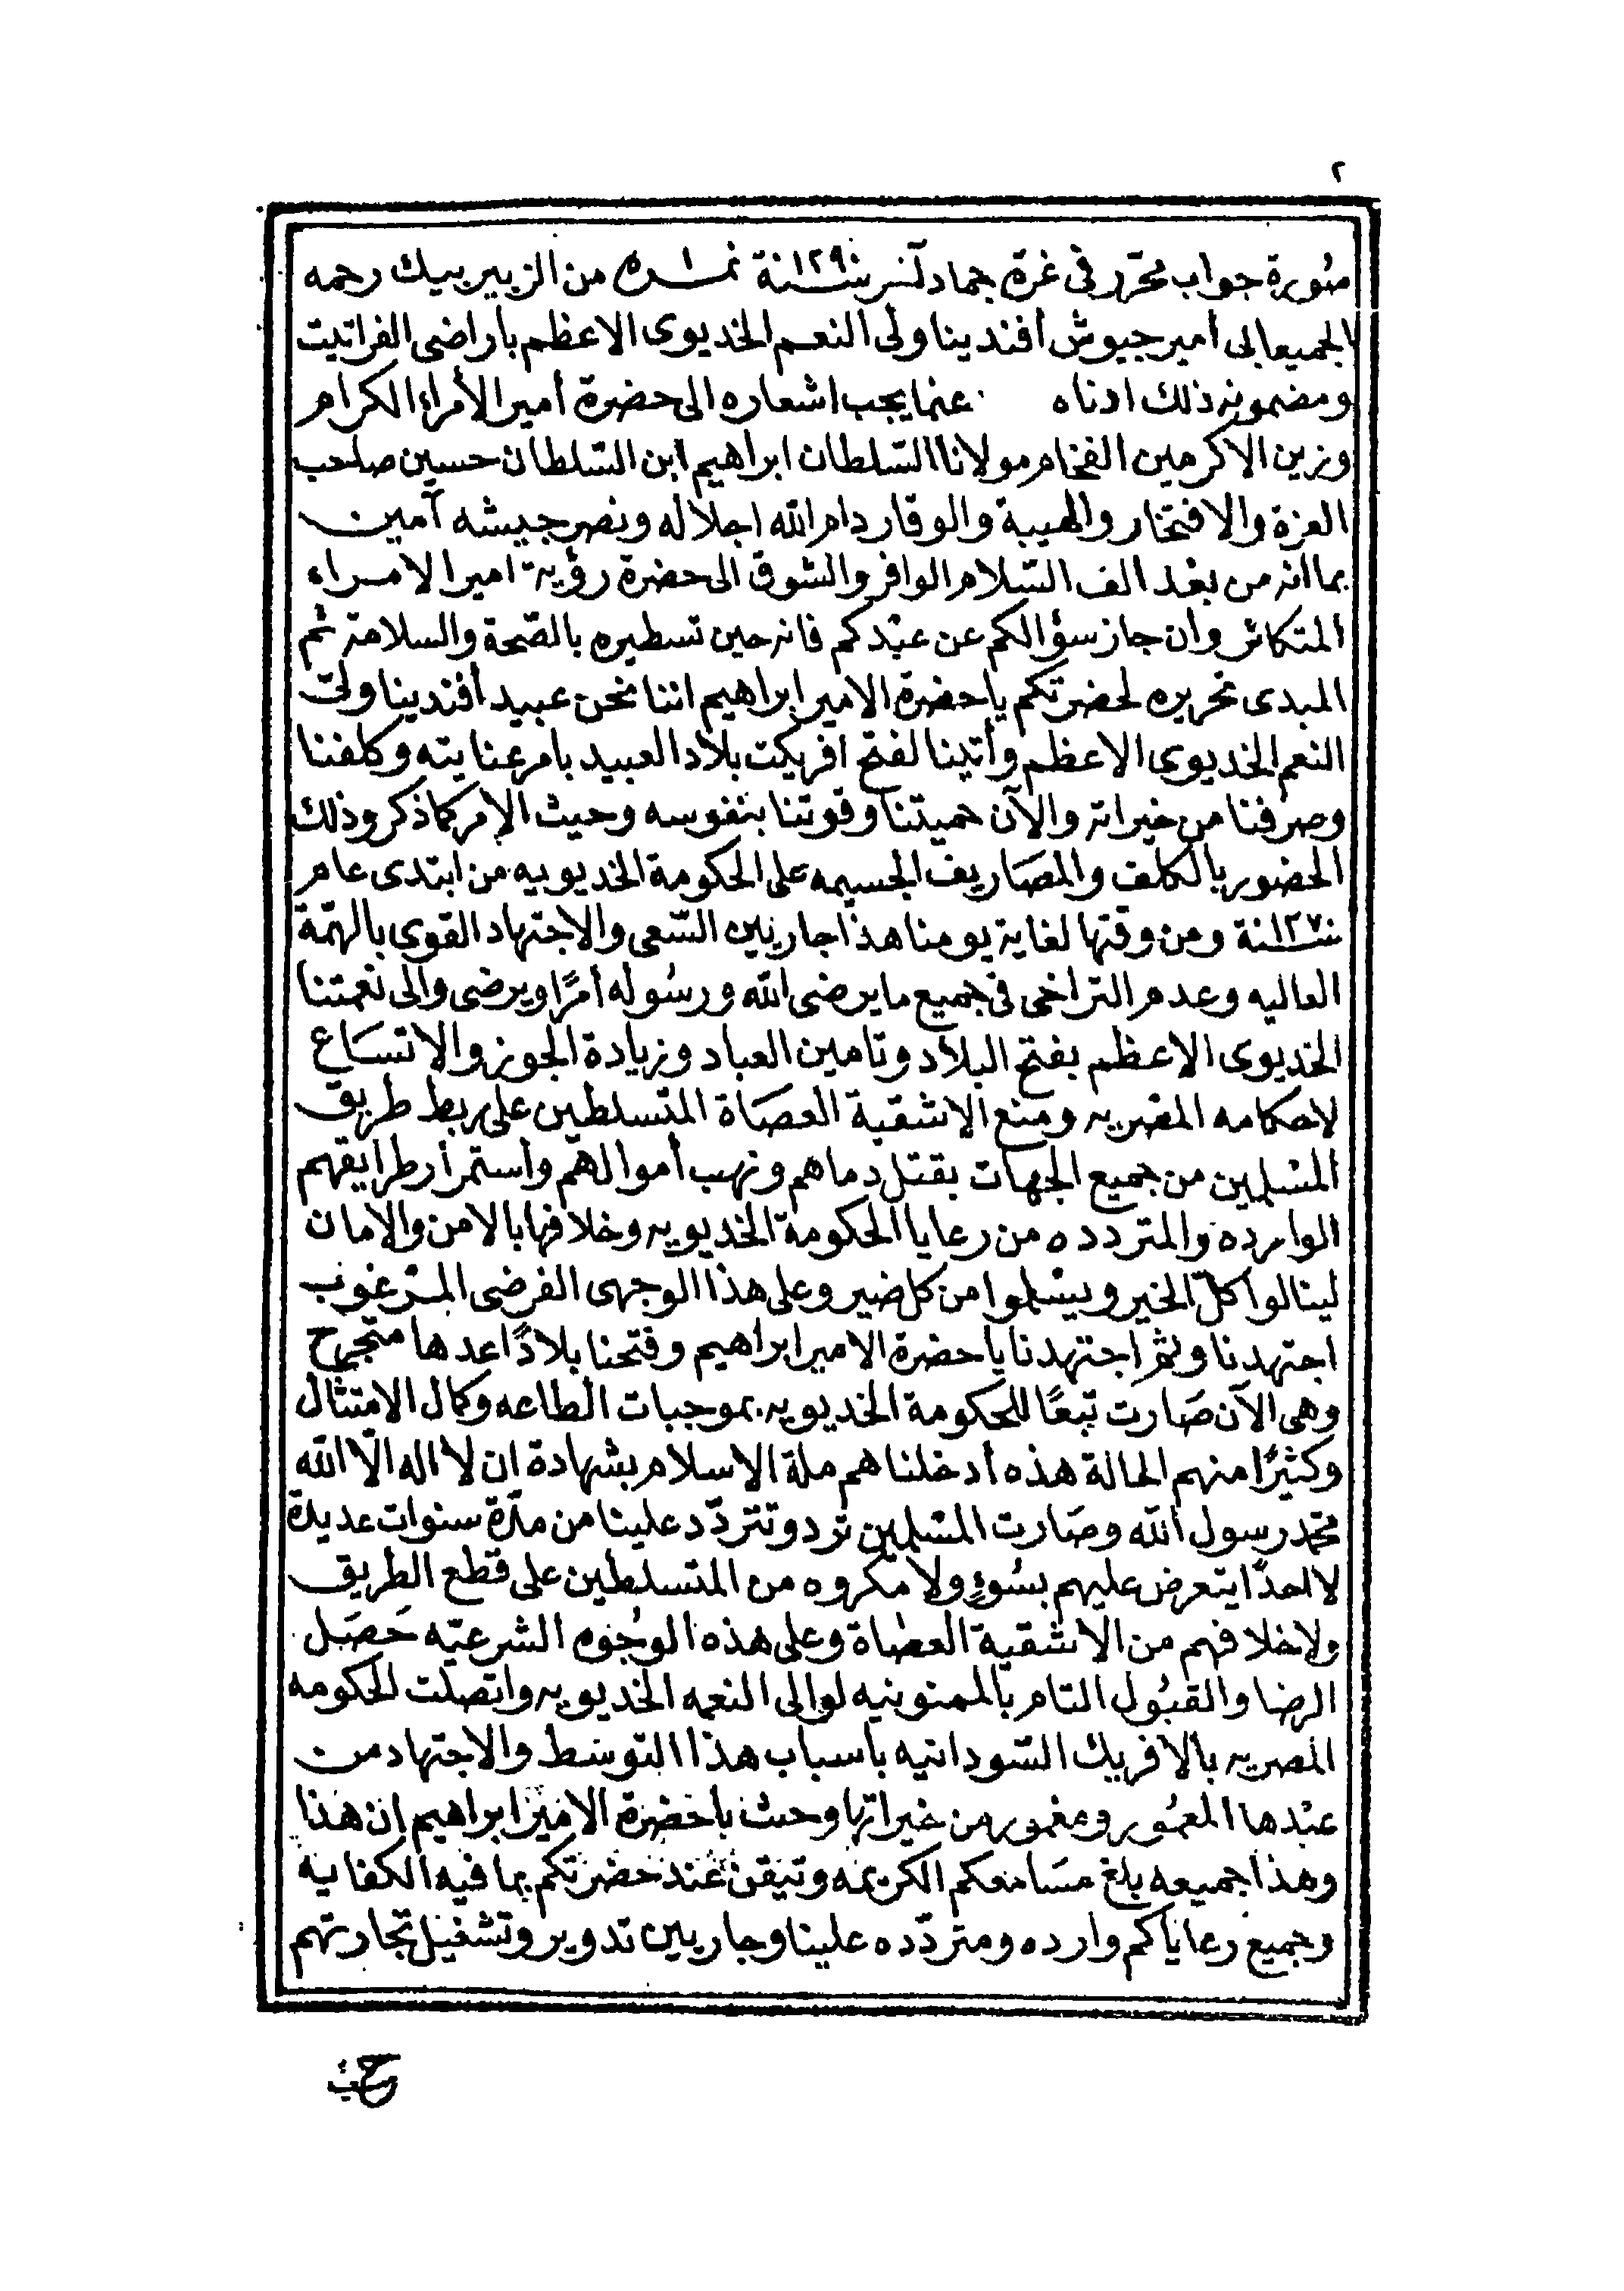 ٢
صورة جواب محرّر فى غرة جماد آخر سنة ١٢٩٠ نمره ١ من الزبير بيك رحمه
الجميعابى أمير جيوش أفندينا ولى النعم الخديوى الاعظم بأراضى الفراتيت
ومضمونه ذلك ادناه . عنما يجب اشعاره الى حضرة أمير الأمراء الكرام
وزين الاكرمين الفخام مولانا السّلطان ابراهيم ابن السّلطان حسين صاحب
العزة والافتخار والهيبة والوقار دام الله اجلاله ونصر جيشه آمين
بما انه من بعد الف السّلام الوافر والشوق الى حضرة رؤية امير الامراء
المتكاثر وان جاز سؤالكم عن عبدكم فانه حين تسطيره بالصّحة والسلامة ثم
المبدى تحريره لحضرتكم يا حضرة الامير ابراهيم اننا نحن عبيد أفندينا ولىّ
النعم الخديوى الاعظم وأتينا لفتح افريكت بلاد العبيد بامر عنايته وكلفنا
وصرفنا من خيراته والآن حميتنا وقوتنا بنفوسه وحيث الامر كما ذكر وذلك
الحضور بالكلف والمصاريف الجسيمه على الحكومة الخديوييه من ابتدى عام
سنة ١٢٧٠ ومن وقتها لغاية يومنا هذا جاريين السّعى والاجتهاد القوى بالهمّة
العاليه وعدم التراخى فى جميع ما يرضى الله ورسوله أمرًا ويرضى والى نعمتنا
الخديوى الاعظم بفتح البلاد وتامين العباد وزيادة الجوز والاتساع
لاحكامه المصريه ومنع الاشقية العصاة المتسلطين على ربط طريق
المسلمين من جميع الجهات بقتل دماهم ونهب أموالهم وأستمرأر طرايقهم
الوارده والمتردده من رعايا الحكومة الخديويه وخلافها بالامن والامان
لينالوا كلّ الخير ويسلموا من كل ضير وعلى هذا الوجهى الفرضى المرغوب
اجتهدنا وثم اجتهدنا يا حضرة الامير ابراهيم وفتحنا بلادًا عدها متجرح
وهى الآن صارت تبعًا للحكومة الخديويه بموجبات الطاعه وكمال الامتثال
وكثيرًا منهم الحالة هذه أدخلناهم ملة الاسلام بشهادة ان لا اله الّا الله
محمّد رسول الله وصارت المسلمين ترد وتتردّد علينا من مدّة سنوات عديدة
لا احدًا يتعرض عليهم بسُوءٍ ولا مكروه من المتسلطين على قطع الطريق
ولا خلافهم من الاشقية العصاة وعلى هذه الوجُوه الشرعيّه حَصَل
الرضا والقبُول التام بالممنونيه لوالى النعمه الخديويه واتصلت الحكومه
المصريه بالافريك السّودانيه باسباب هذا التوسّط والاجتهاد من
عبْدها المعمُور ومغمور من خيراتها وحيث يا حضرة الامير ابراهيم ان هذا
وهذا جميعه بلغ مسَامعكم الكريمه وتيقن عند حضرتكم بما فيه الكفايه
وجميع رعاياكم وارده ومتردّده علينا وجاريين تدوير وتشغيل تجارتهم